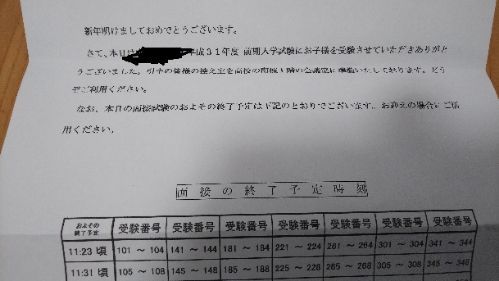 新年明けましておめでとうございます。
さて、本日は 平成31年度 前期入学試験にお子様を受験させていただきありがと
うございました。 の皆様の控え室を高校の 1階の会議室に準備いたしております。どう
ぞご利用ください。
なお、本日の面接試験のおよその終了予定は下記のとおりでございます。お迎えの場合にご活
用ください。
面接の終了予定時刻
およその終了予定 受験番号 受験番号 受験番号 受験番号 受験番号 受験番号 受験番号
11:23 頃 101 ～ 104 141 ～ 144 181 ～ 184 221 ～ 224 261 ～ 264 301 ～ 304 341 ～ 344
11:31 頃 105 ～ 108 145 ～ 148 185 ～ 188 225 ～ 228 265 ～ 268 305 ～ 308 345 ～ 348